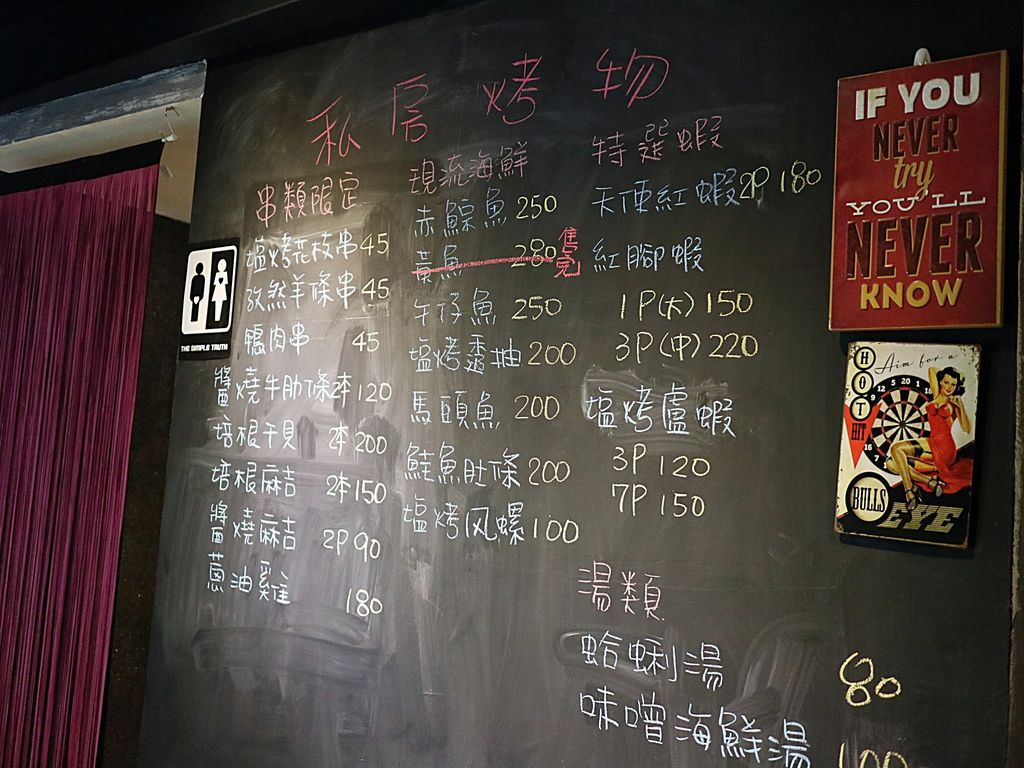 私房烤物
串類限定
塩烤花枝串45
孜然羊條串45
鴨肉串 45
醬燒牛肋條2本120
培根干貝 2本200
培根麻吉 2本150
醬燒麻吉 2P 90
蔥油雞 180
現流海鮮
赤鯮魚 250
黃魚 280 售完
午仔魚 250
塩烤透抽 200
馬頭魚 200
鮭魚肚條 200
塩烤风螺100
特選蝦
天使紅蝦2P 180
紅腳蝦
1P(大)150
3P(中)220
塩烤盧蝦
3P 120
7P 150
湯類
蛤蜊湯 80
味噌海鮮湯 100
THE SIMPLE TRUTH
IF YOU
NEVER
try
YOU'LL
NEVER
KNOW
HOT
HIT
Aim for a
BULLS
EYE